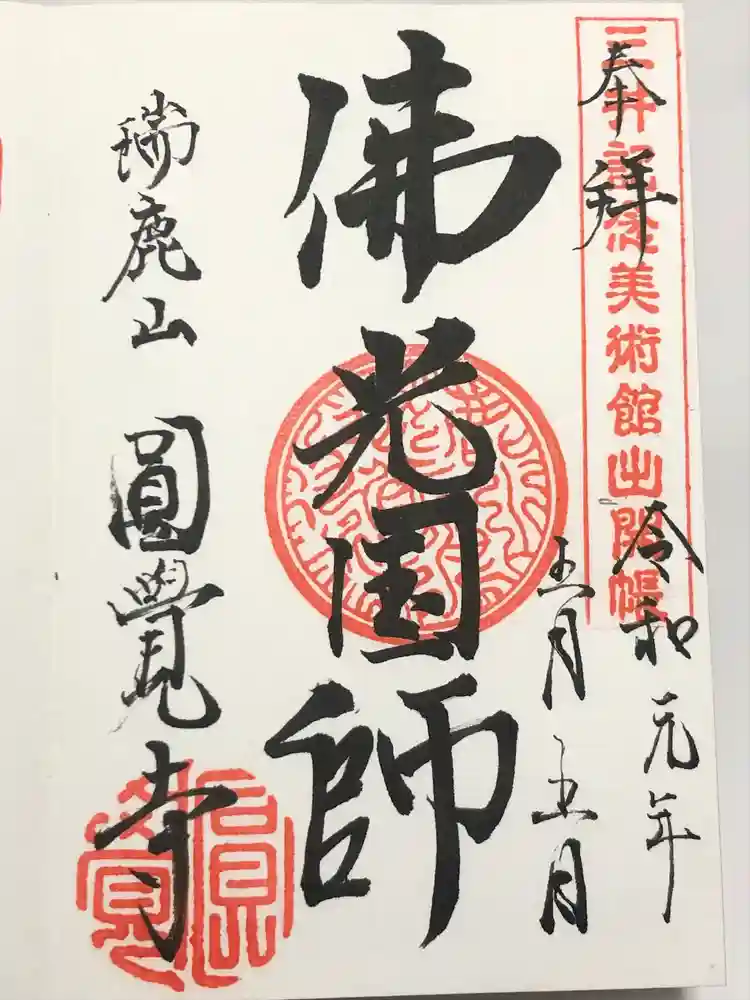 三井記念美術館出開帳
奉拜
令和元年
五月五日
佛光国師
瑞鹿山 圓覺寺